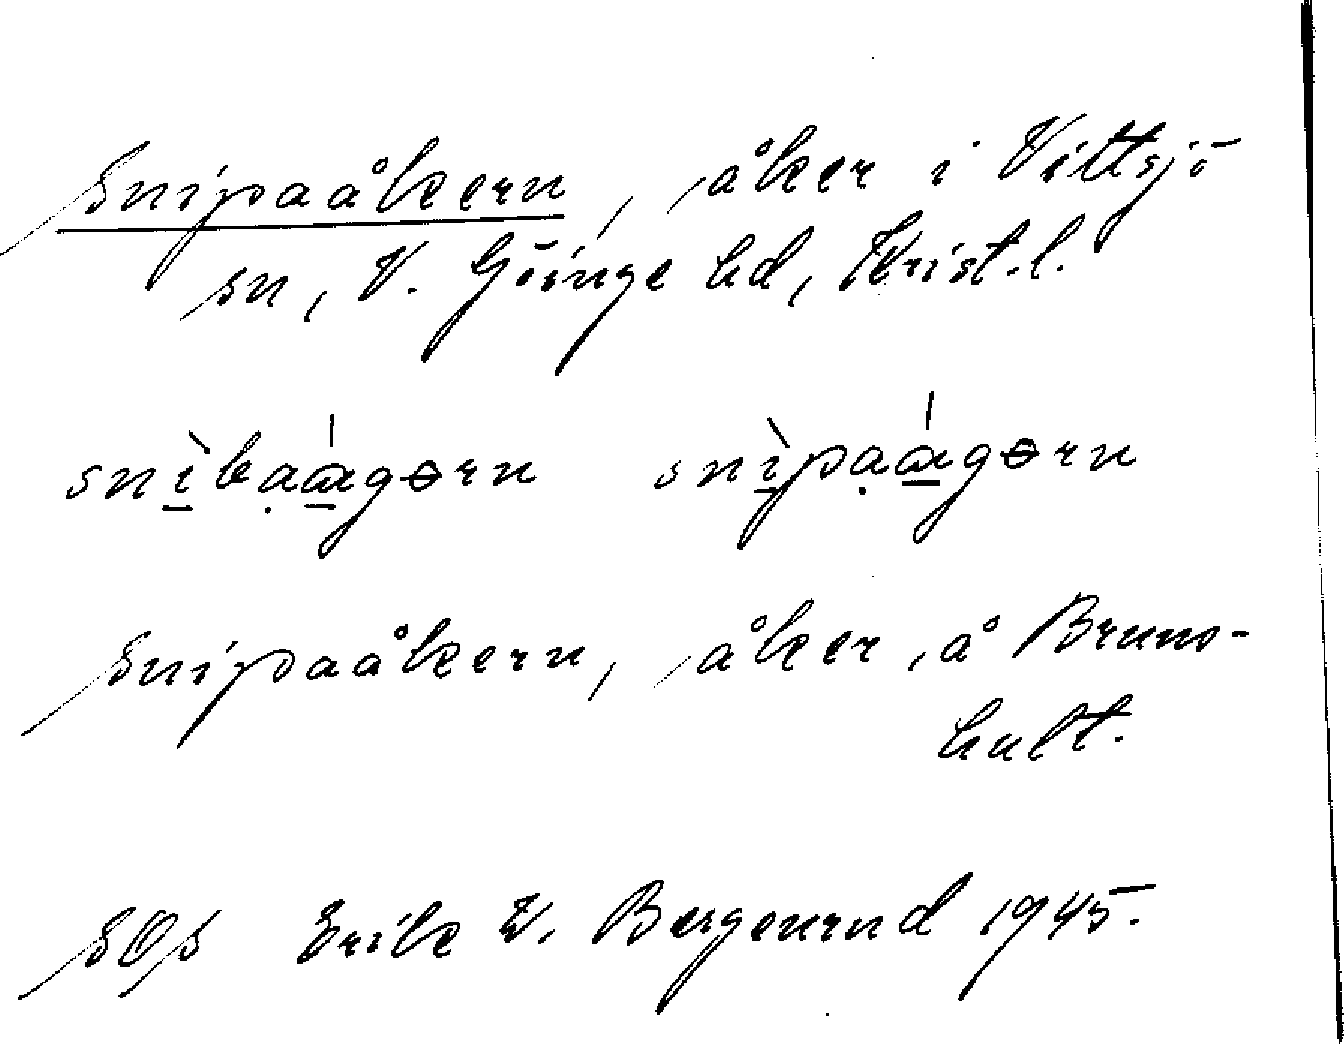 Snipaåkern, åker i Vittsjö
sn, V. Göinge hd, Krist.l.
snìbaágørn snìpaágørn
Snipaåkern, åker, å Bruns-
hult.
SOS Erik W. Bergenrud 1945.